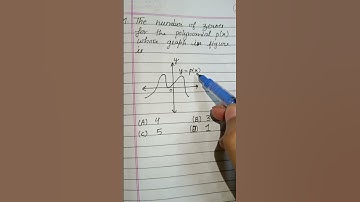 1. The number of zeroes
for the polynomial p(x)
whose graph in figure
is
y
y=p(x)
0
(A) 4 (B) 3
(C) 5 (D) 1